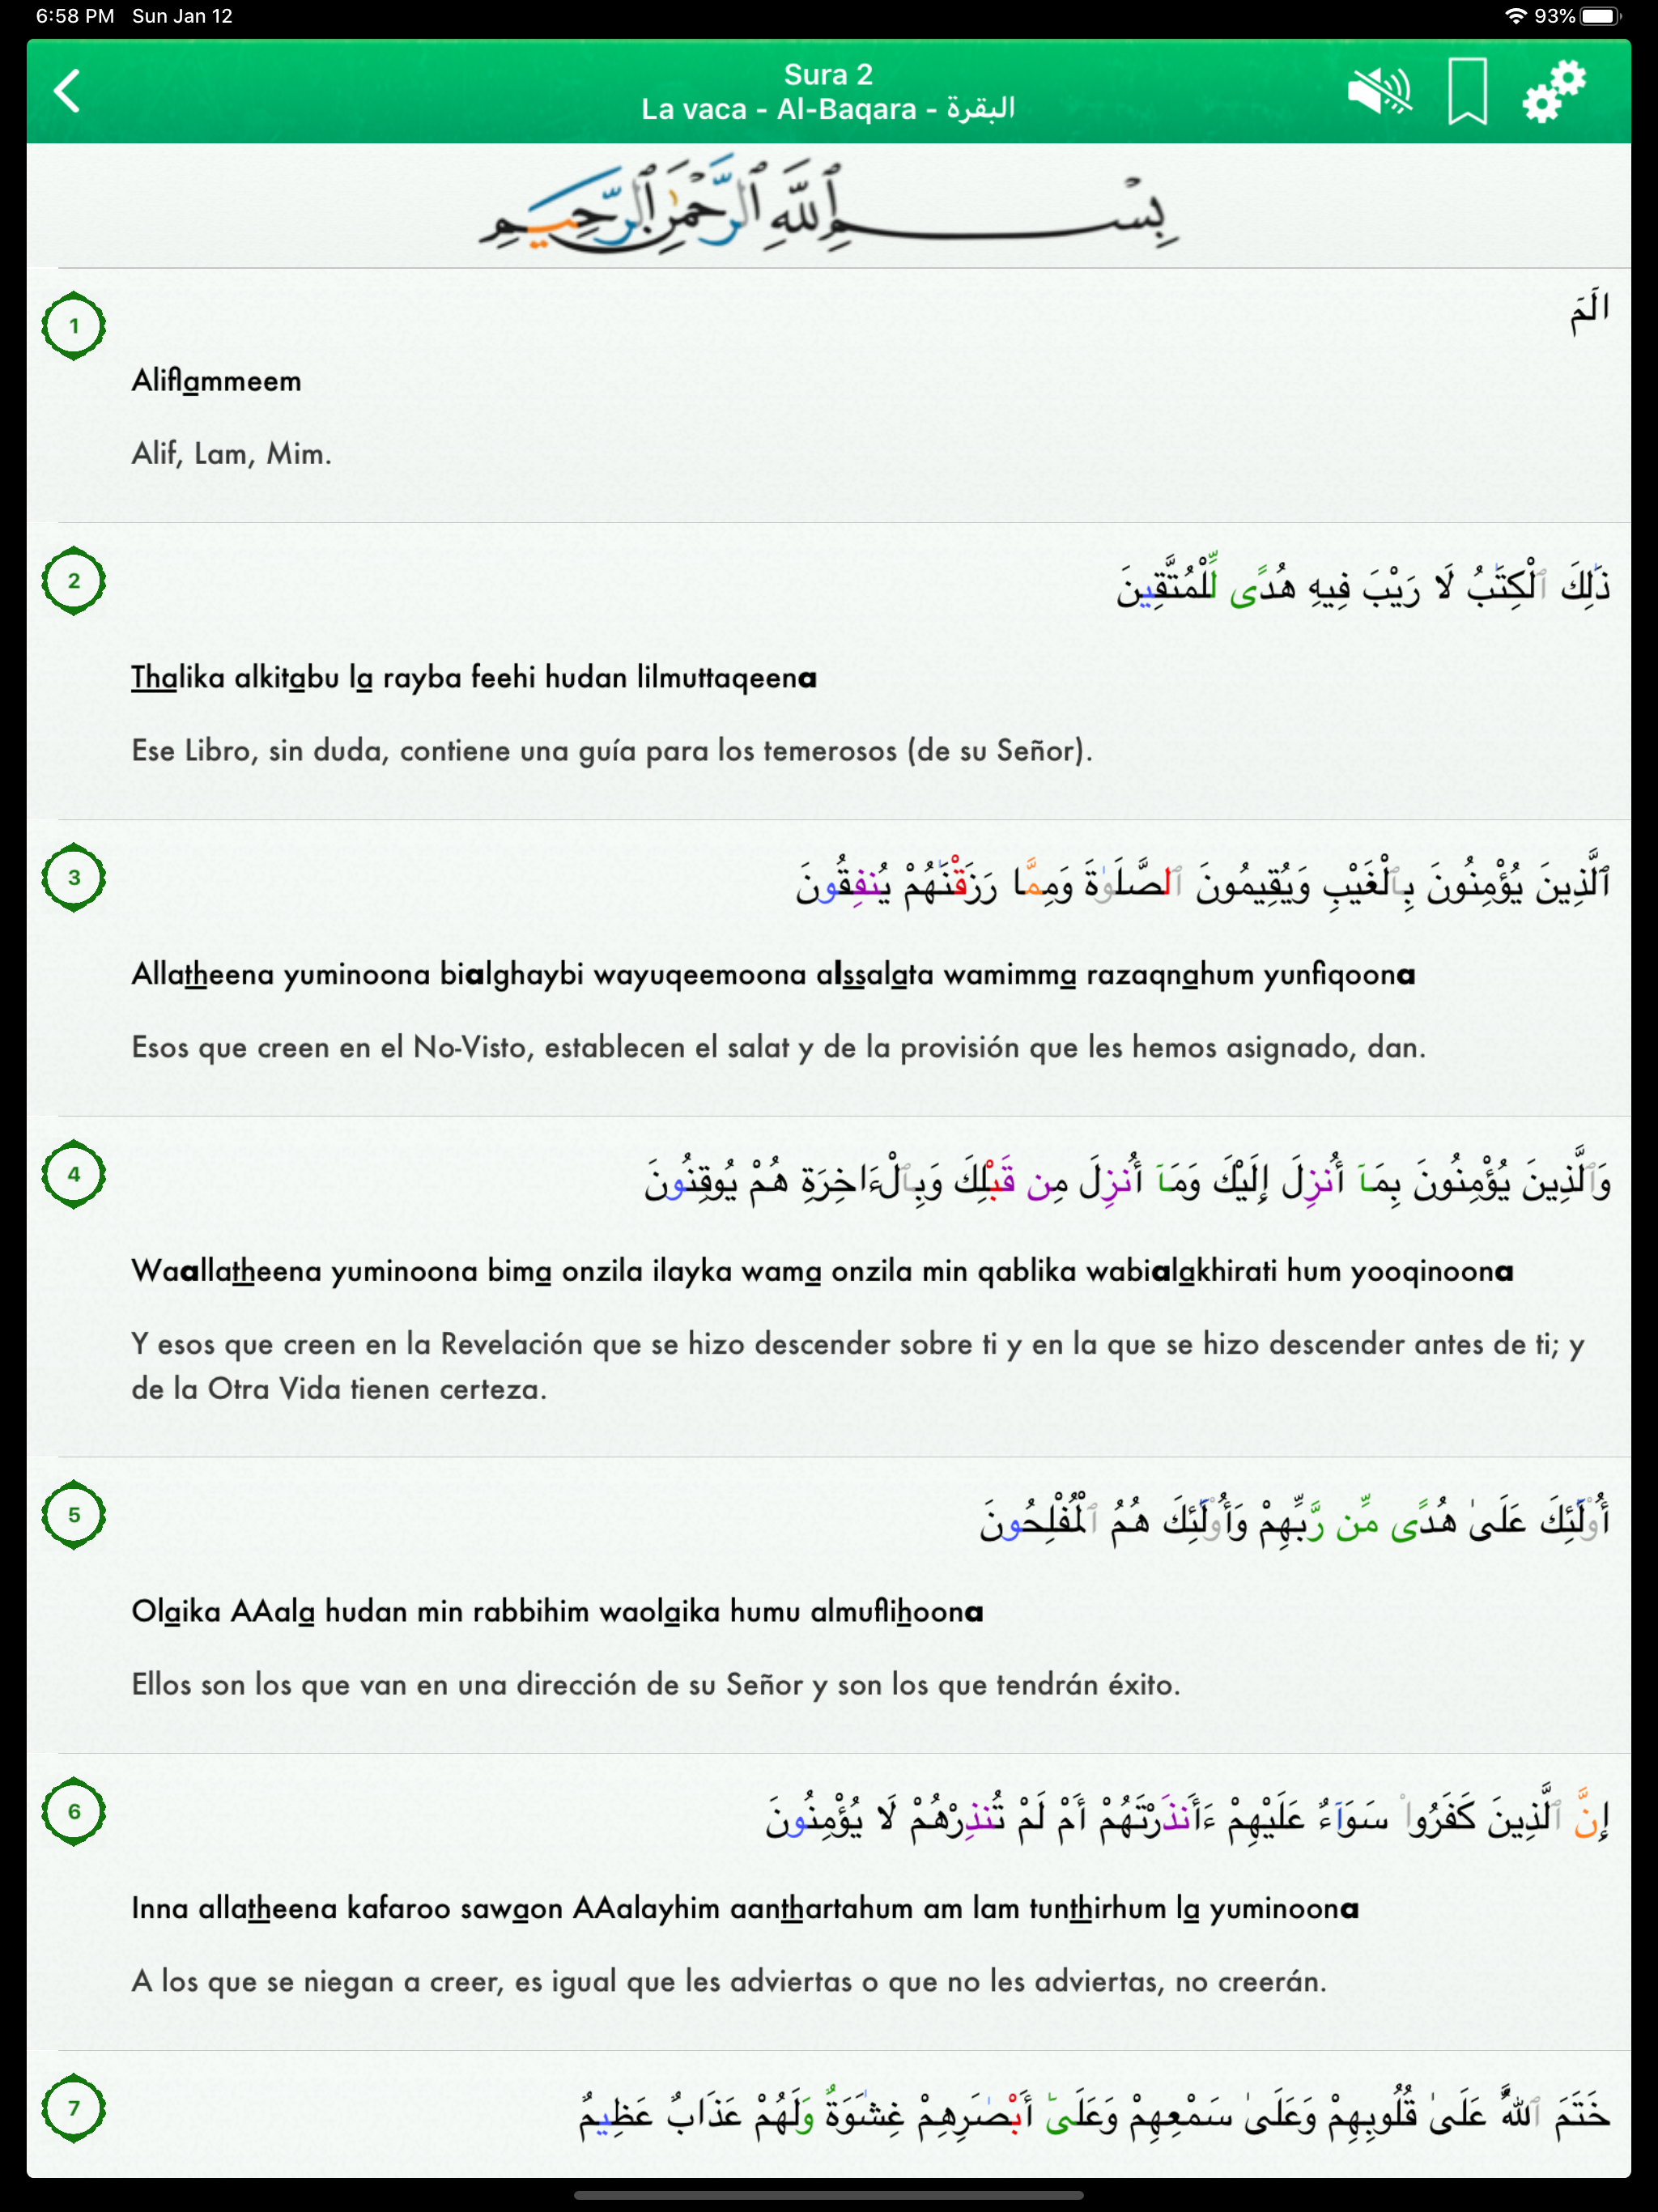 6:58 PM Sun Jan 12 93%
Sura 2
La vaca - Al-Baqara - البقرة
بِسْمِ ٱللَّهِ ٱلرَّحْمَٰنِ ٱلرَّحِيمِ
1
الَمَ
Aliflammeem
Alif, Lam, Mim.
2
ذَٰلِكَ ٱلْكِتَٰبُ لَا رَيْبَ فِيهِ هُدًى لِّلْمُتَّقِينَ
Thalika alkitabu la rayba feehi hudan lilmuttaqeena
Ese Libro, sin duda, contiene una guía para los temerosos (de su Señor).
3
ٱلَّذِينَ يُؤْمِنُونَ بِٱلْغَيْبِ وَيُقِيمُونَ ٱلصَّلَوٰةَ وَمِمَّا رَزَقْنَٰهُمْ يُنفِقُونَ
Allatheena yuminoona bialghaybi wayuqeemoona alssalata wamimma razaqnahum yunfiqoona
Esos que creen en el No-Visto, establecen el salat y de la provisión que les hemos asignado, dan.
4
وَٱلَّذِينَ يُؤْمِنُونَ بِمَآ أُنزِلَ إِلَيْكَ وَمَآ أُنزِلَ مِن قَبْلِكَ وَبِٱلْءَاخِرَةِ هُمْ يُوقِنُونَ
Waallatheena yuminoona bima onzila ilayka wama onzila min qablika wabialakhirati hum yooqinoona
Y esos que creen en la Revelación que se hizo descender sobre ti y en la que se hizo descender antes de ti; y
de la Otra Vida tienen certeza.
5
أُو۟لَٰٓئِكَ عَلَىٰ هُدًى مِّن رَّبِّهِمْ وَأُو۟لَٰٓئِكَ هُمُ ٱلْمُفْلِحُونَ
Olaika AAala hudan min rabbihim waolaika humu almuflihoona
Ellos son los que van en una dirección de su Señor y son los que tendrán éxito.
6
إِنَّ ٱلَّذِينَ كَفَرُوا۟ سَوَآءٌ عَلَيْهِمْ ءَأَنذَرْتَهُمْ أَمْ لَمْ تُنذِرْهُمْ لَا يُؤْمِنُونَ
Inna allatheena kafaroo sawaon AAalayhim aanthartahum am lam tunthirhum la yuminoona
A los que se niegan a creer, es igual que les adviertas o que no les adviertas, no creerán.
7
خَتَمَ ٱللَّهُ عَلَىٰ قُلُوبِهِمْ وَعَلَىٰ سَمْعِهِمْ وَعَلَىٰٓ أَبْصَٰرِهِمْ غِشَٰوَةٌ وَلَهُمْ عَذَابٌ عَظِيمٌ